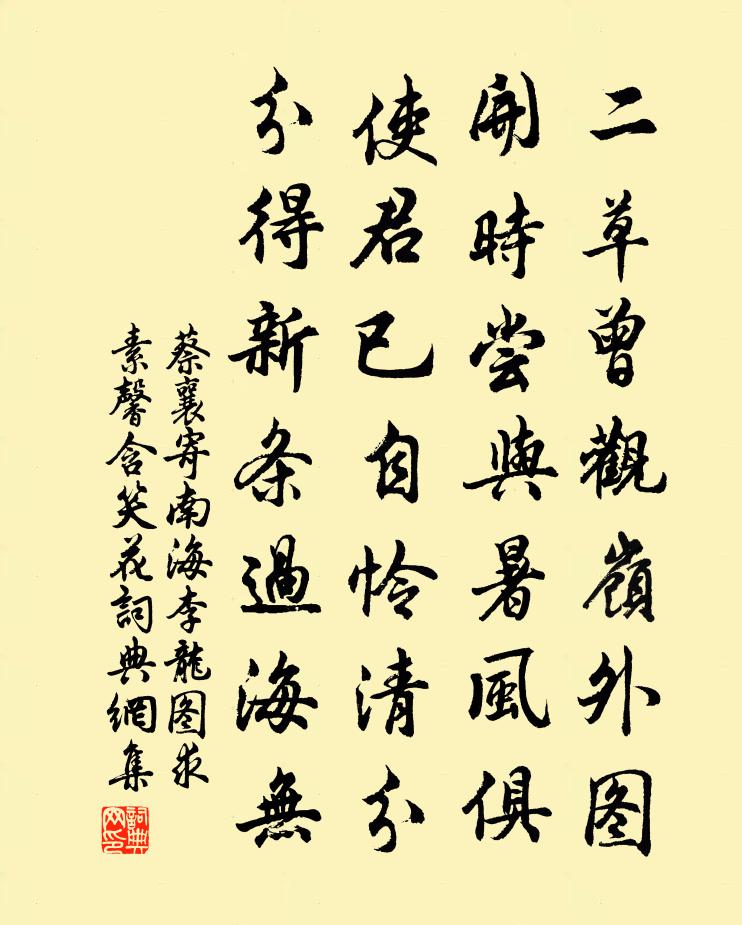 二草曾觀嶺外图
開時尝與暑風俱
使君已自怜清分
分得新条過海無
蔡襄寄南海李龍图求
素馨含笑花詞典網集
詞典网印